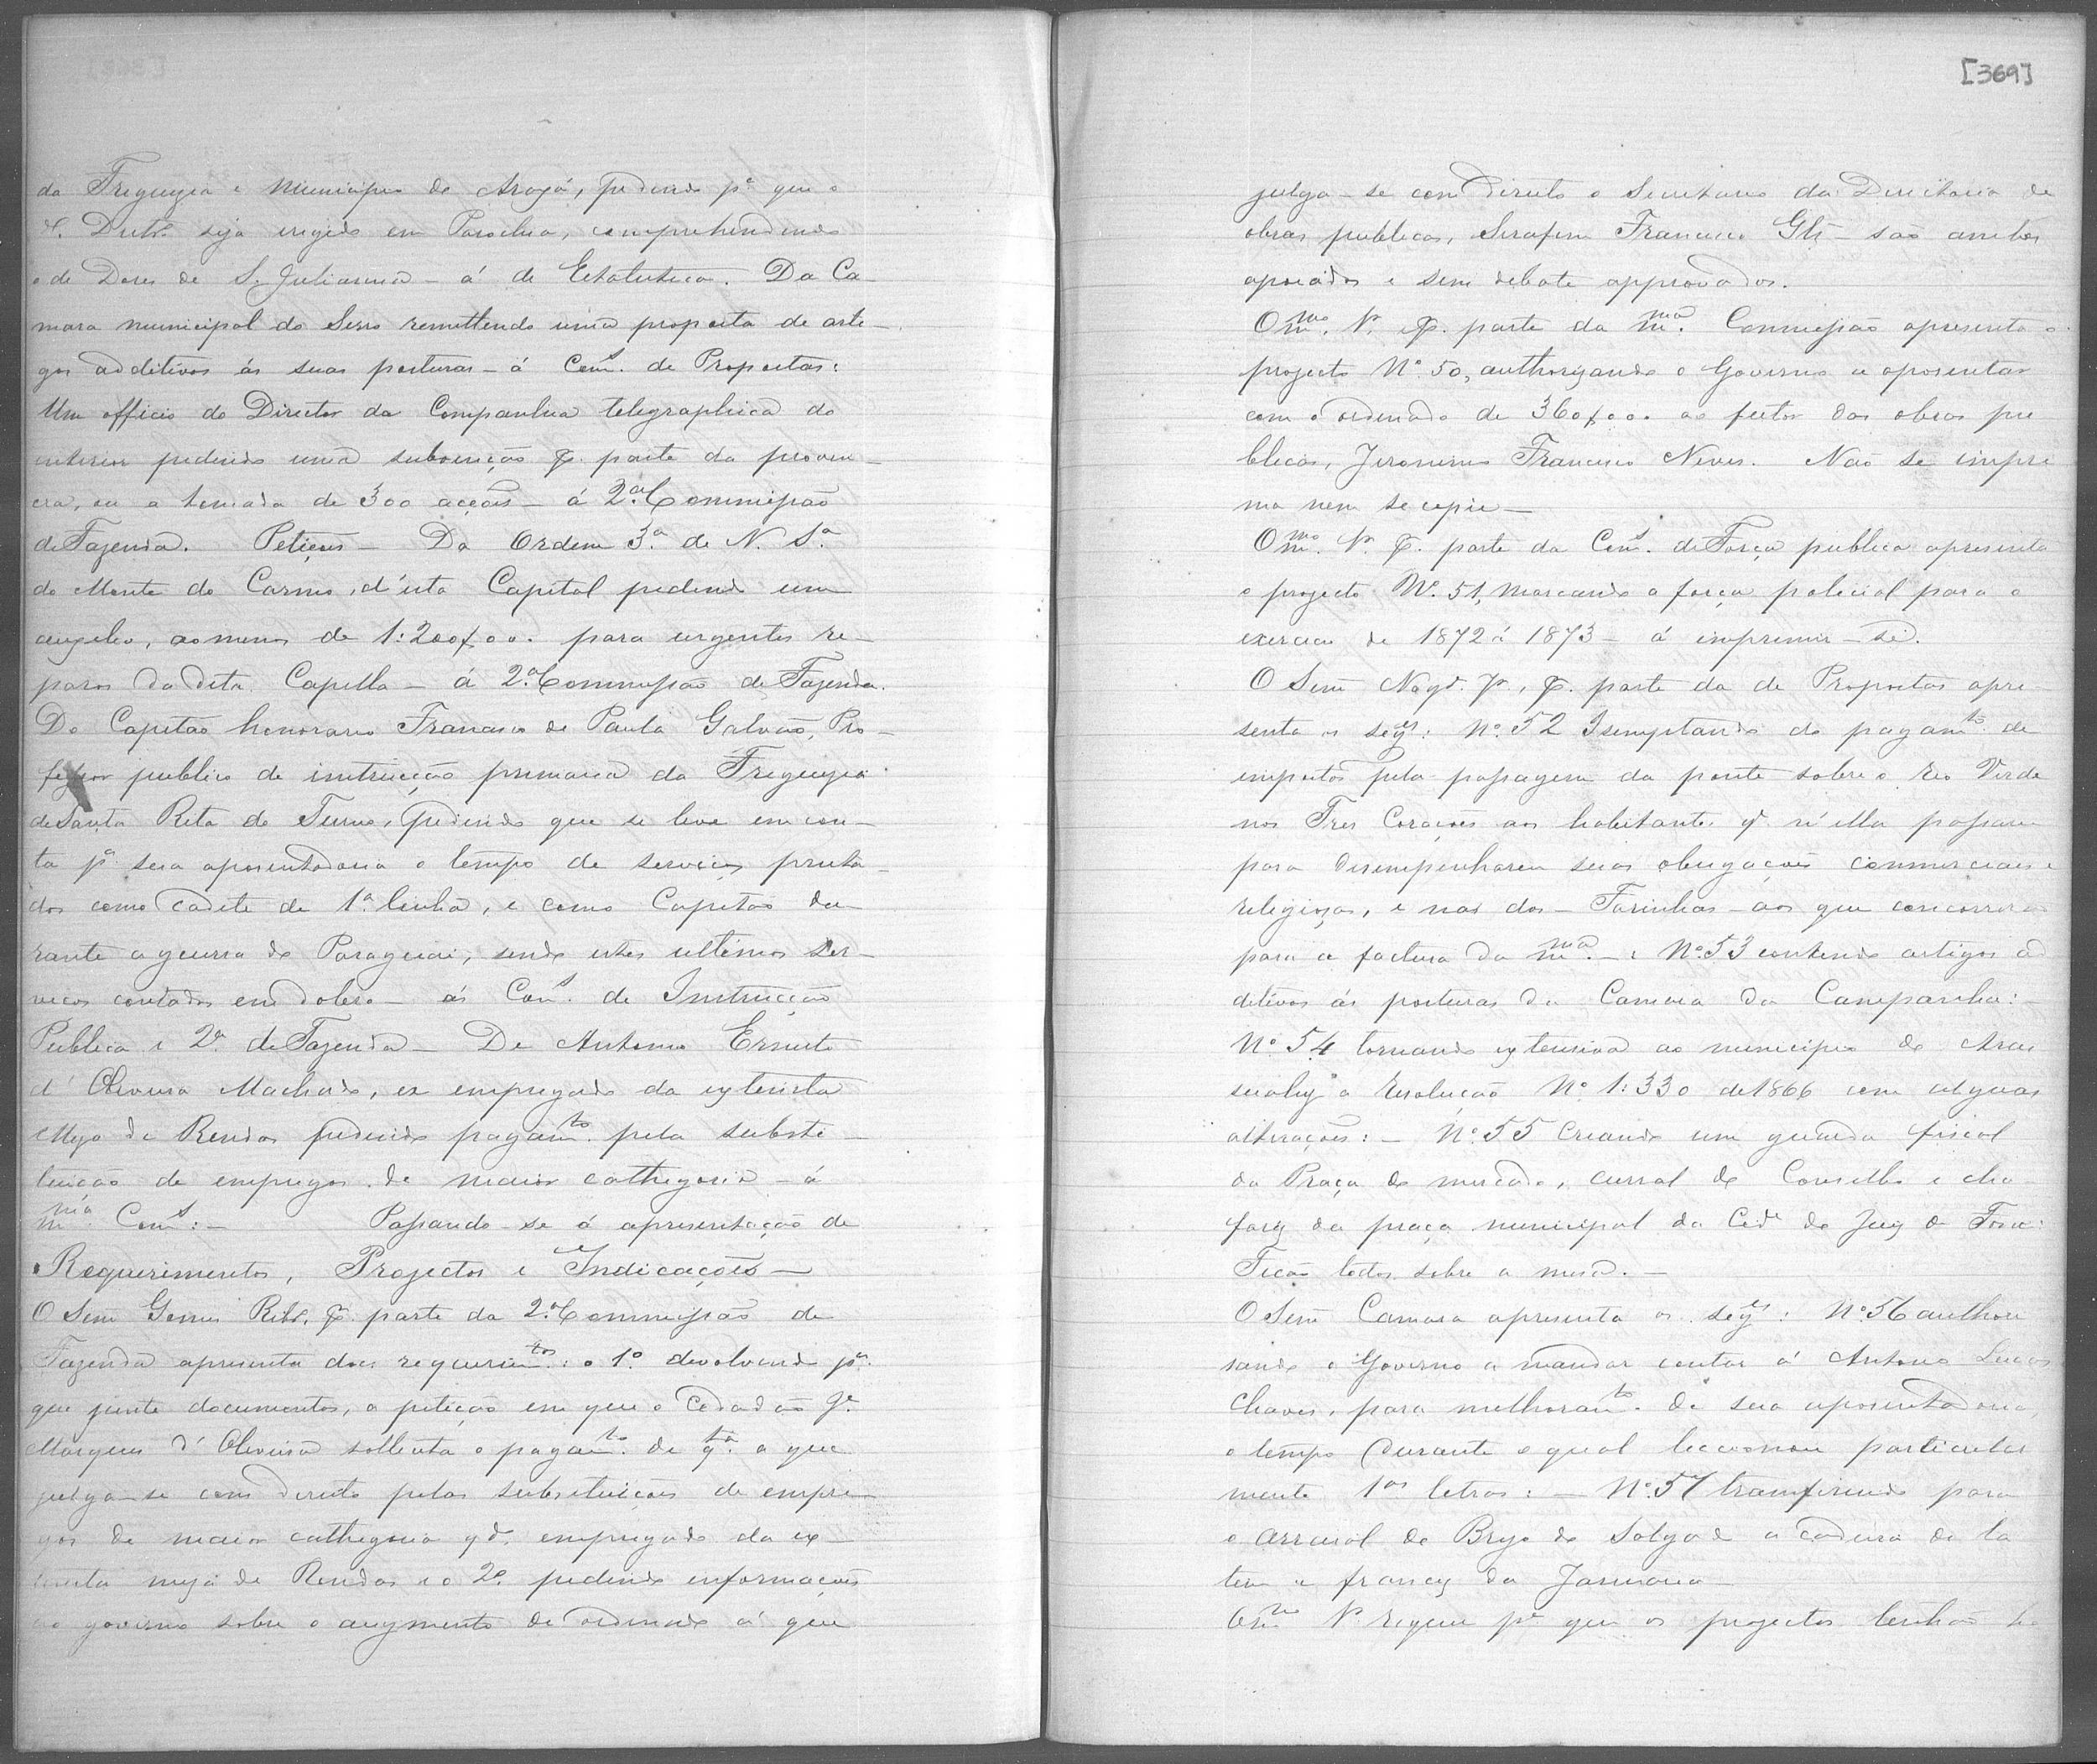 da Freguezia e Municipio do Araxá, pedindo pª que o
d. Distrº seja erigido em Parochia, comprehendendo
o de Dores de S. Julianna - á de Estatistica. Da Ca-
mara municipal do Serro remettendo uma proposta de arti-
gos additivos ás suas posturas - á Comˢ. de Propostas:
Um officio do Director da Companhia telegraphica do
interior pedindo uma subvenção p. parte da provin-
cia, ou a tomada de 300 acções - á 2.ª Commissão
de Fazenda. Petições - Da Ordem 3.ª de N. Sª
do Monte do Carmo, d'esta Capital pedindo um
auxilio, ao menos de 1:200$00. para urgentes re-
paros da dita Capella - á 2.ª Commissão de Fazenda.
Do Capitão honorario Francisco de Paula Galvão, Pro-
fessor publico de instrucção primaria da Freguezia
de Santa Rita do Turvo, pedindo que se leve em con-
ta pª sua aposentadoria o tempo de serviços presta-
dos como Cadete de 1ª linha, e como Capitão du-
rante a guerra do Paraguai, sendo estes ultimos ser-
viços contados em dobro - ás Comˢ. de Instrucção
Publica e 2ª de Fazenda - De Antonio Ernesto
d'Oliveira Machado, ex empregado da extincta
Meza de Rendas pedindo pagamtº. pela substi-
tuição de empregos de maior cathegoria - á
mma. Comˢ: - Passando-se á apresentação de
Requerimentos, Projectos e Indicações -
O Senr Gomes Ribr. p. parte da 2.ª Commissão de
Fazenda apresenta dois requerimtos: o 1º devolvendo pª.
que junte documentos, a petição em que o Cidadão Je.
Marques d'Oliveira sollicita o pagamto. de qta. a que
julga-se com direito pelas substituições de empre-
gos de maior cathegoria qdº. empregado da ex-
tincta meza de Rendas e o 2º. pedindo informações
ao governo sobre o augmento de ordenado á que
[369]
julga-se com direito o Secretario da Directoria de
obras publicas, Serafim Francisco Glz - são ambos
apoiados e sem debate approvados.
O mmo. Sr. p. parte da mma. Commissão apresenta o
projecto Nº. 50, authorizando o Governo a aposentar
com o ordenado de 360$00. ao feitor das obras pu
blicas, Jeronimo Francisco Neves. Não se impri
ma nem se copie -
O mmo. Sr. p. parte da Comˢ. de Força publica apresenta
o projecto Nº. 51, marcando a força policial para o
exercicio de 1872 á 1873 - á imprimir-se.
O Senr Nogr. Jr, p. parte da de Propostas apre-
senta os segˢ: Nº. 52 Isemptando do pagamto. de
impostos pela passagem da ponte sobre o Rio Verde
nos Tres Corações aos habitantes q n'ella passarem
para desempenharem suas obrigações commerciaes e
religiosas, e nos dos - Farinhas - aos que concorrerão
para a factura da mma. - : Nº. 53 contendo artigos ad
ditivos ás posturas da Camara da Campanha: -
Nº 54 tornando extensiva ao municipio do Aras
suahy a Resolução Nº 1:330 de 1866 com algumas
alterações: - Nº. 55 Creando um guarda fiscal
da Praça do mercado, curral do Conselho e cha
fariz da praça municipal da Cidᵉ do Juiz de Fora:
Ficão todos sobre a mesa. -
O Senr Camara apresenta os segˢ: Nº. 56 authori
sando o Governo a mandar contar á Antonio Lucas
Chaves, para melhoramto. de sua aposentadoria,
o tempo durante o qual leccionou particular
mente 1as letras: - Nº. 57 transferindo para
o arraial do Brejo do Salgado a cadeira de la
tim e francez da Januaria -
O mmo Sr. requer pª que os projectos tenhão